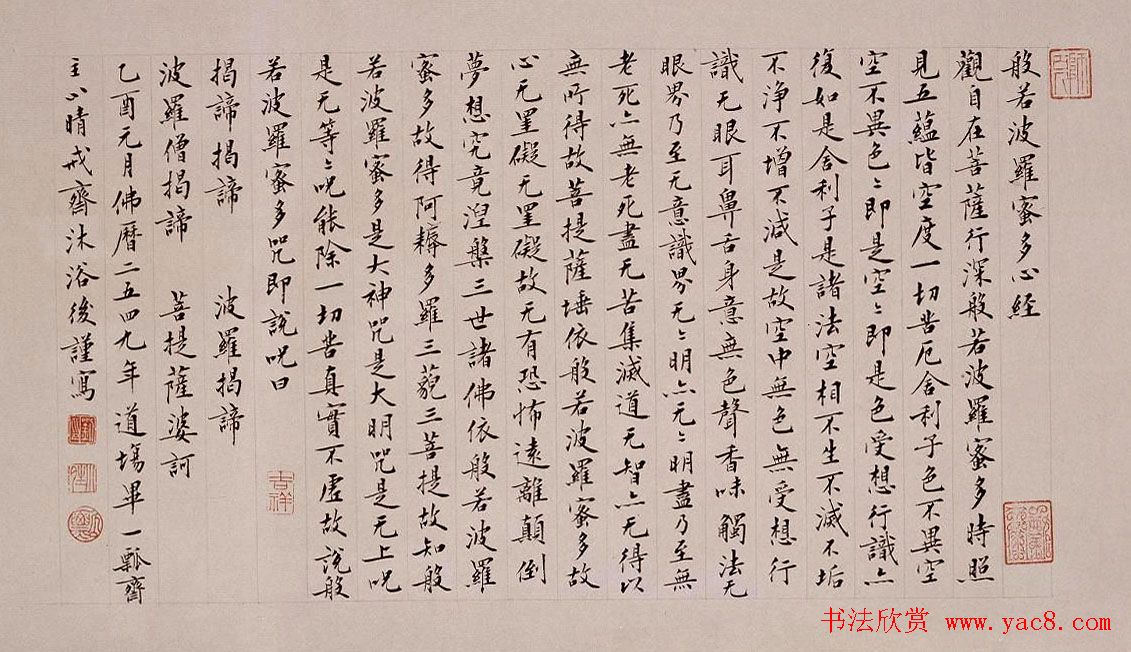 般若波羅蜜多心経
觀自在菩薩行深般若波羅蜜多時照
見五蘊皆空度一切苦厄舍利子色不異空
空不異色〻即是空〻即是色受想行識亦
復如是舍利子是諸法空相不生不滅不垢
不净不增不減是故空中無色無受想行
識无眼耳鼻舌身意無色聲香味觸法无
眼界乃至无意識界无〻明亦无〻明盡乃至無
老死亦無老死盡无苦集滅道无智亦无得以
無所得故菩提薩埵依般若波羅蜜多故
心无罣礙无罣礙故无有恐怖遠離顛倒
夢想究竟涅槃三世諸佛依般若波羅
蜜多故得阿耨多羅三藐三菩提故知般
若波羅蜜多是大神咒是大明咒是无上呪
是无等〻呪能除一切苦真實不虛故說般
若波羅蜜多咒即說呪曰
吉祥
揭諦揭諦 波羅揭諦
波羅僧揭諦 菩提薩婆訶
乙酉元月佛曆二五四九年道場畢一瓢齋
主人晴戒齋沐浴後謹寫
书法欣赏 www.yac8.com